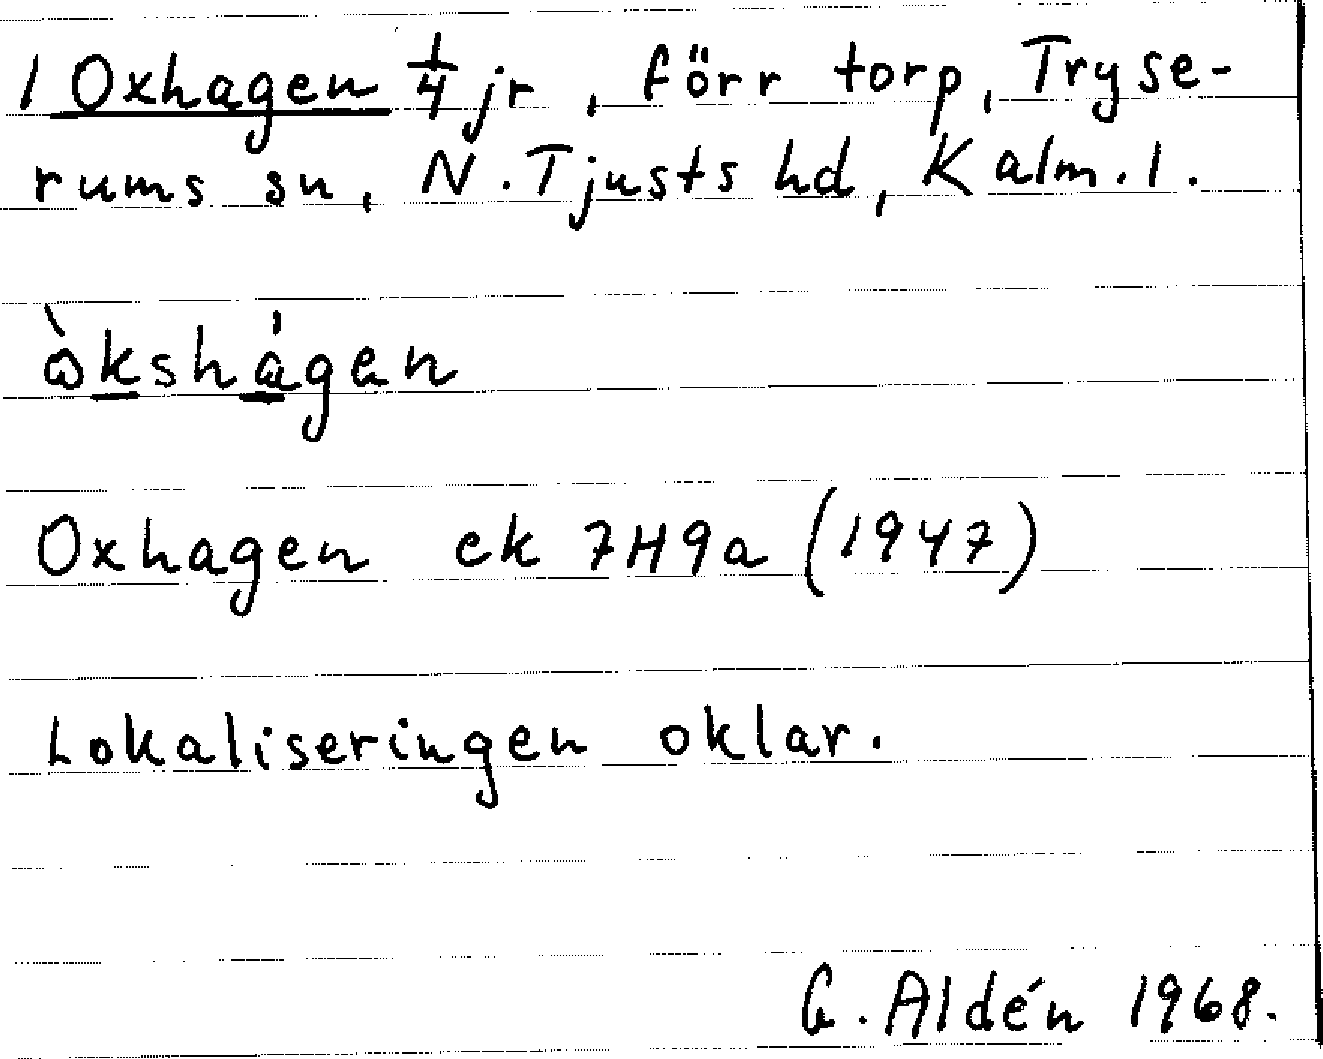 1 Oxhagen 1/4 jr, förr torp, Tryse-
rums sn, N. Tjusts hd, Kalm. l.
òkshágen
Oxhagen ek 7H9a (1947)
Lokaliseringen oklar.
G. Aldén 1968.